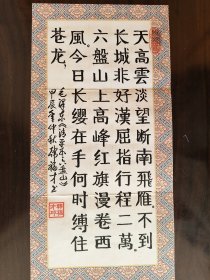 天高雲淡望断南飛雁不到
长城非好漢屈指行程二萬
六盤山上高峰红旗漫卷西
風今日长缨在手何时缚住
苍龙
毛泽东《清平乐六盘山》
甲辰年仲秋